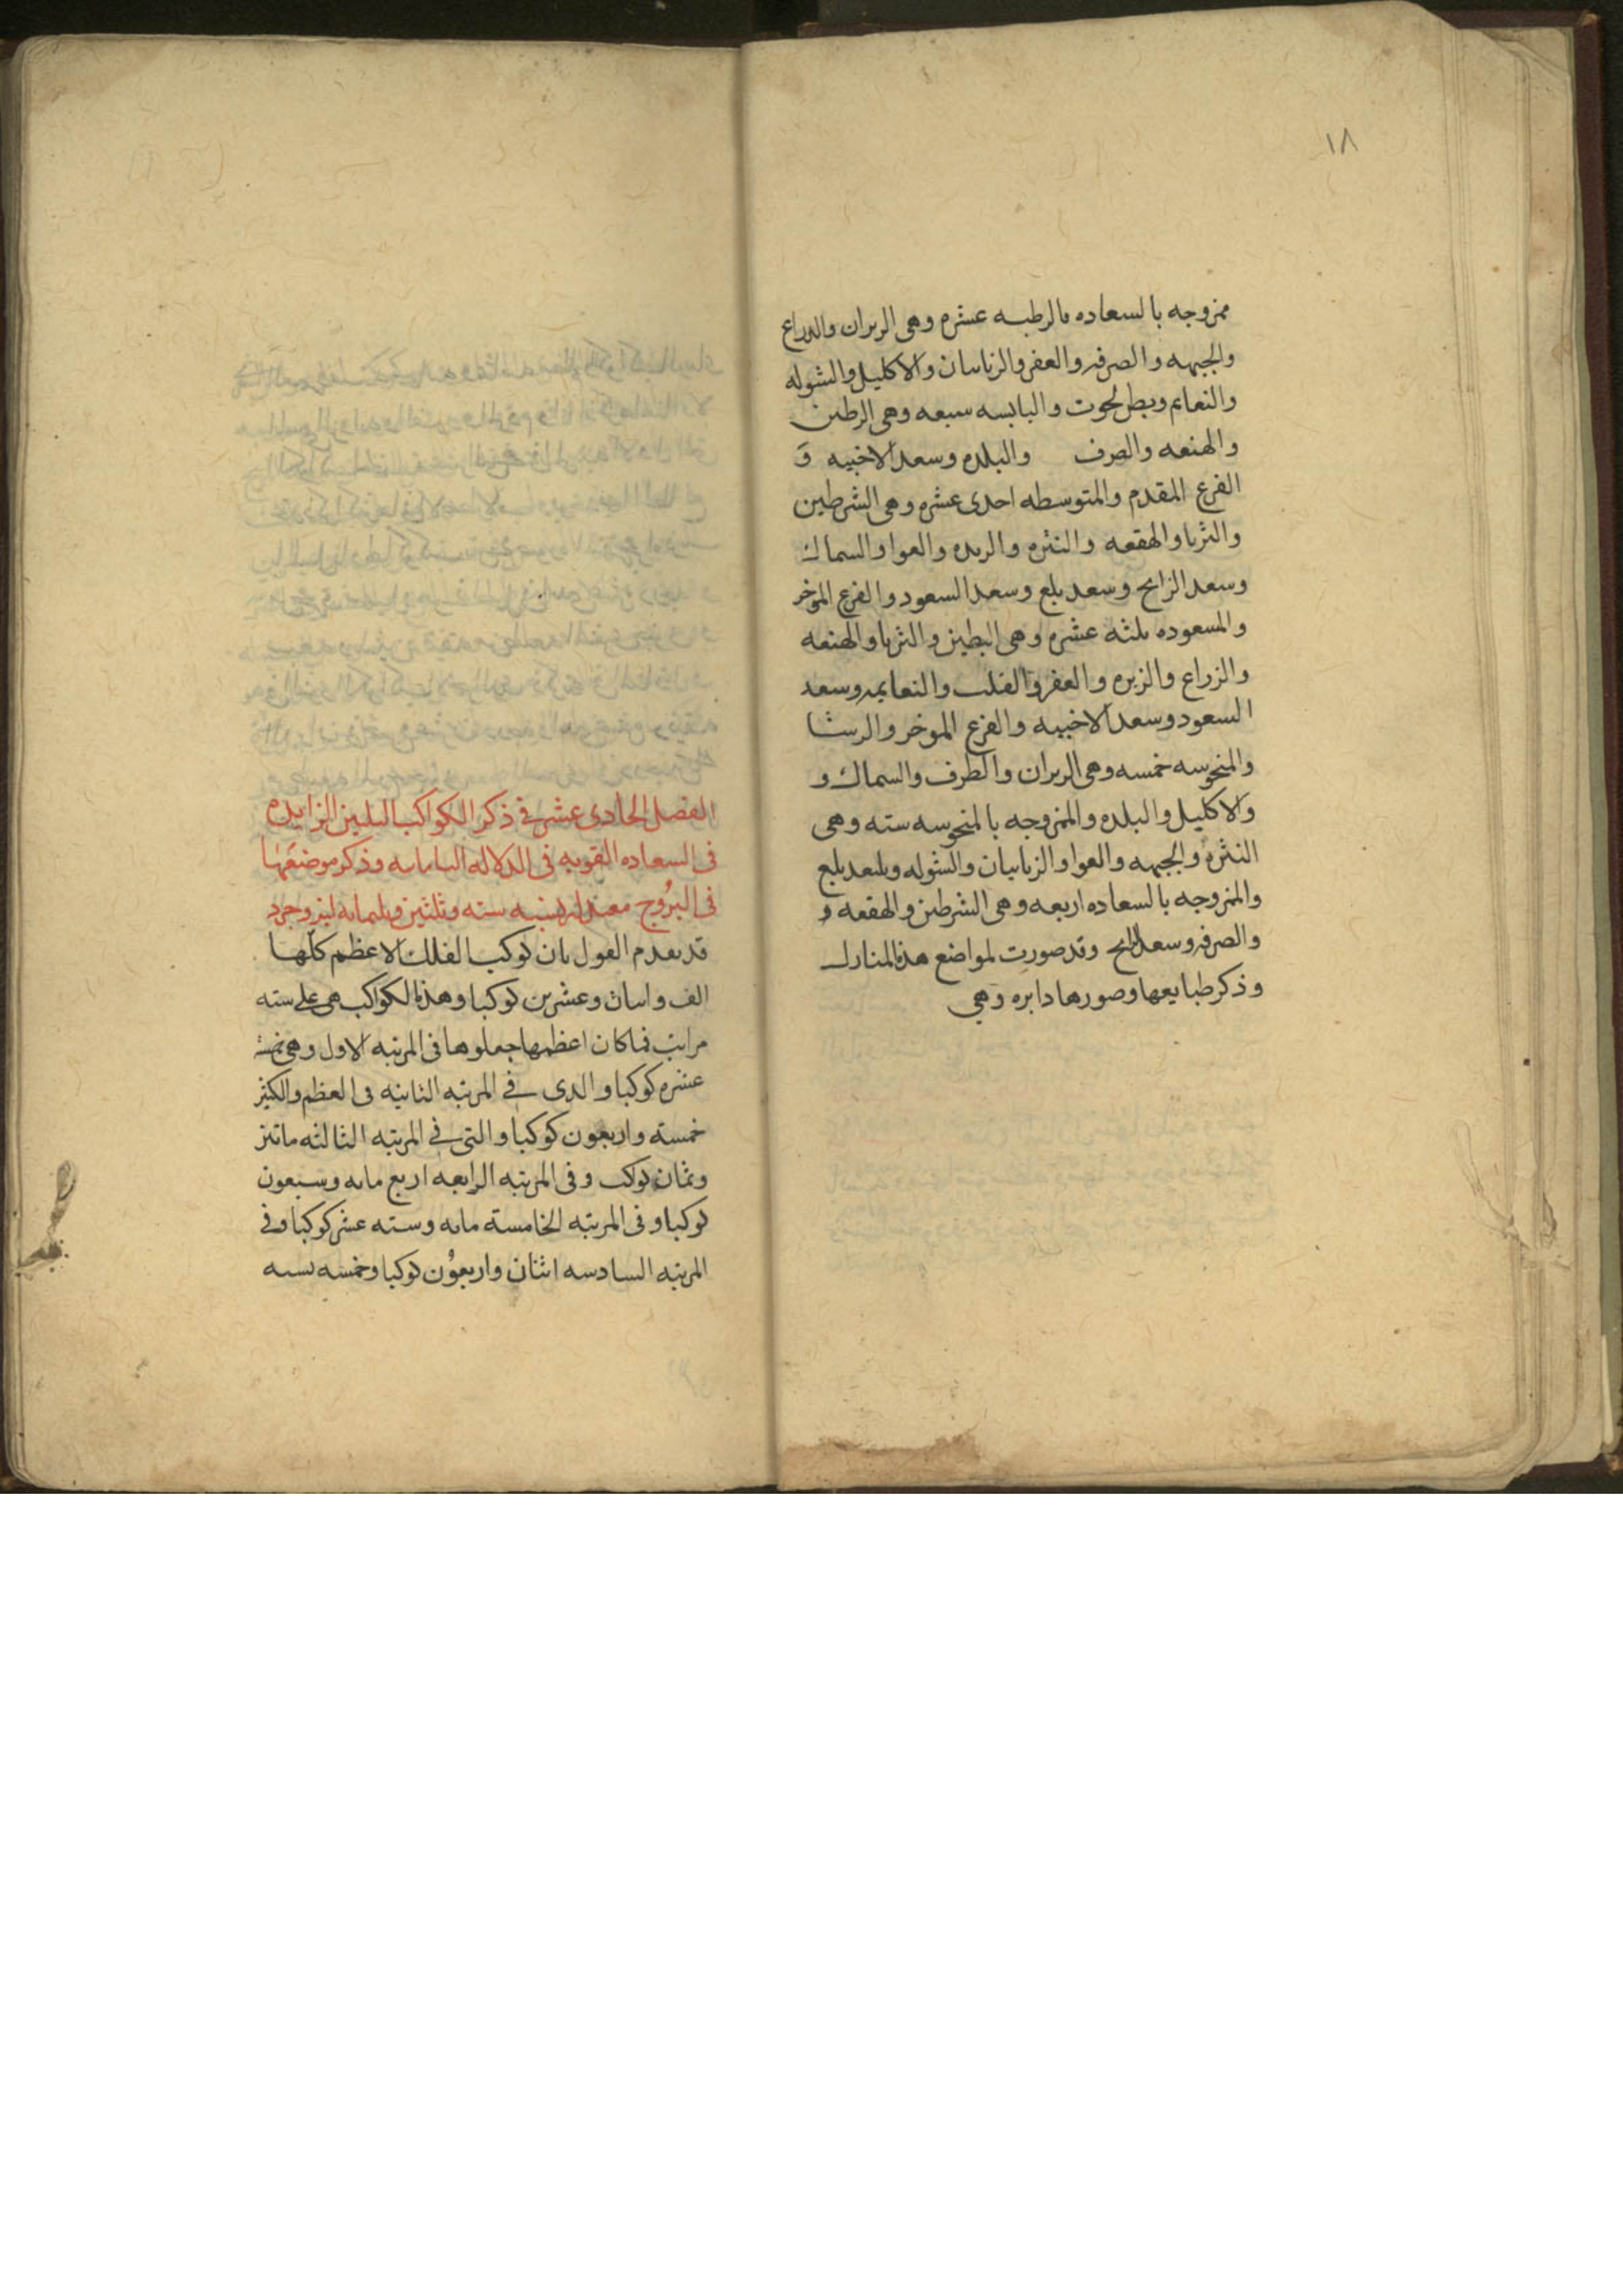 ١٨
ممزوجه بالسعاده فالرطبه عشره وهى الدبران والدراع
والجبهه والصرفه والعفر والزبانان والاكليل والشوله
والنعايم وبطن الحوت واليابسه سبعه وهى البطين
والهنعه والصرف والبلده وسعد الاخبيه و
الفرع المقدم والمتوسطه احدى عشره وهى الشرطين
والثريا والهقعه والنثره والزبره والعوا والسماك
وسعد الزابح وسعد بلع وسعد السعود والفرع الموخر
والمسعوده ثلثه عشره وهى البطين والثريا والهنعه
والزراع والزبره والعفر والقلب والنعايم وسعد
السعود وسعد الاخبيه والفرع الموخر والرشا
والمنحوسه خمسه وهى الدبران والطرف والسماك و
والاكليل والبلده والممزوجه بالمنحوسه سته وهى
النثره والجبهه والعوا والزبانيان والشوله وبلع
والممزوجه بالسعاده اربعه وهى الشرطين والهقعه و
والصرفه وسعد الزابح وقد صورت لمواضع هذه المنازل
وذكر طبايعها وصورها دايره وهي
الفصل الحادى عشر في ذكر الكواكب الثلثين الزايده
فى السعاده القويه فى الدلاله وذكر موضعها
فى البروج سته وثلثين وثلثمايه ليزدجرد
قد تقدم القول بان كوكب الفلك الاعظم كلها
الف واثنان وعشرين كوكبا وهذه الكواكب هى على سته
مراتب فما كان اعظمها جعلوها فى المرتبه الاول وهى خمسة
عشره كوكبا والدى في المرتبه الثانيه فى العظم والكثر
خمسة واربعون كوكبا والتى في المرتبه الثالثه ماتين
وثمان كوكب وفى المرتبه الرابعه اربع مايه وسبعون
كوكبا وفى المرتبه الخامسة مايه وسته عشر كوكبا وفي
المرتبه السادسه اثنان واربعون كوكبا وخمسه